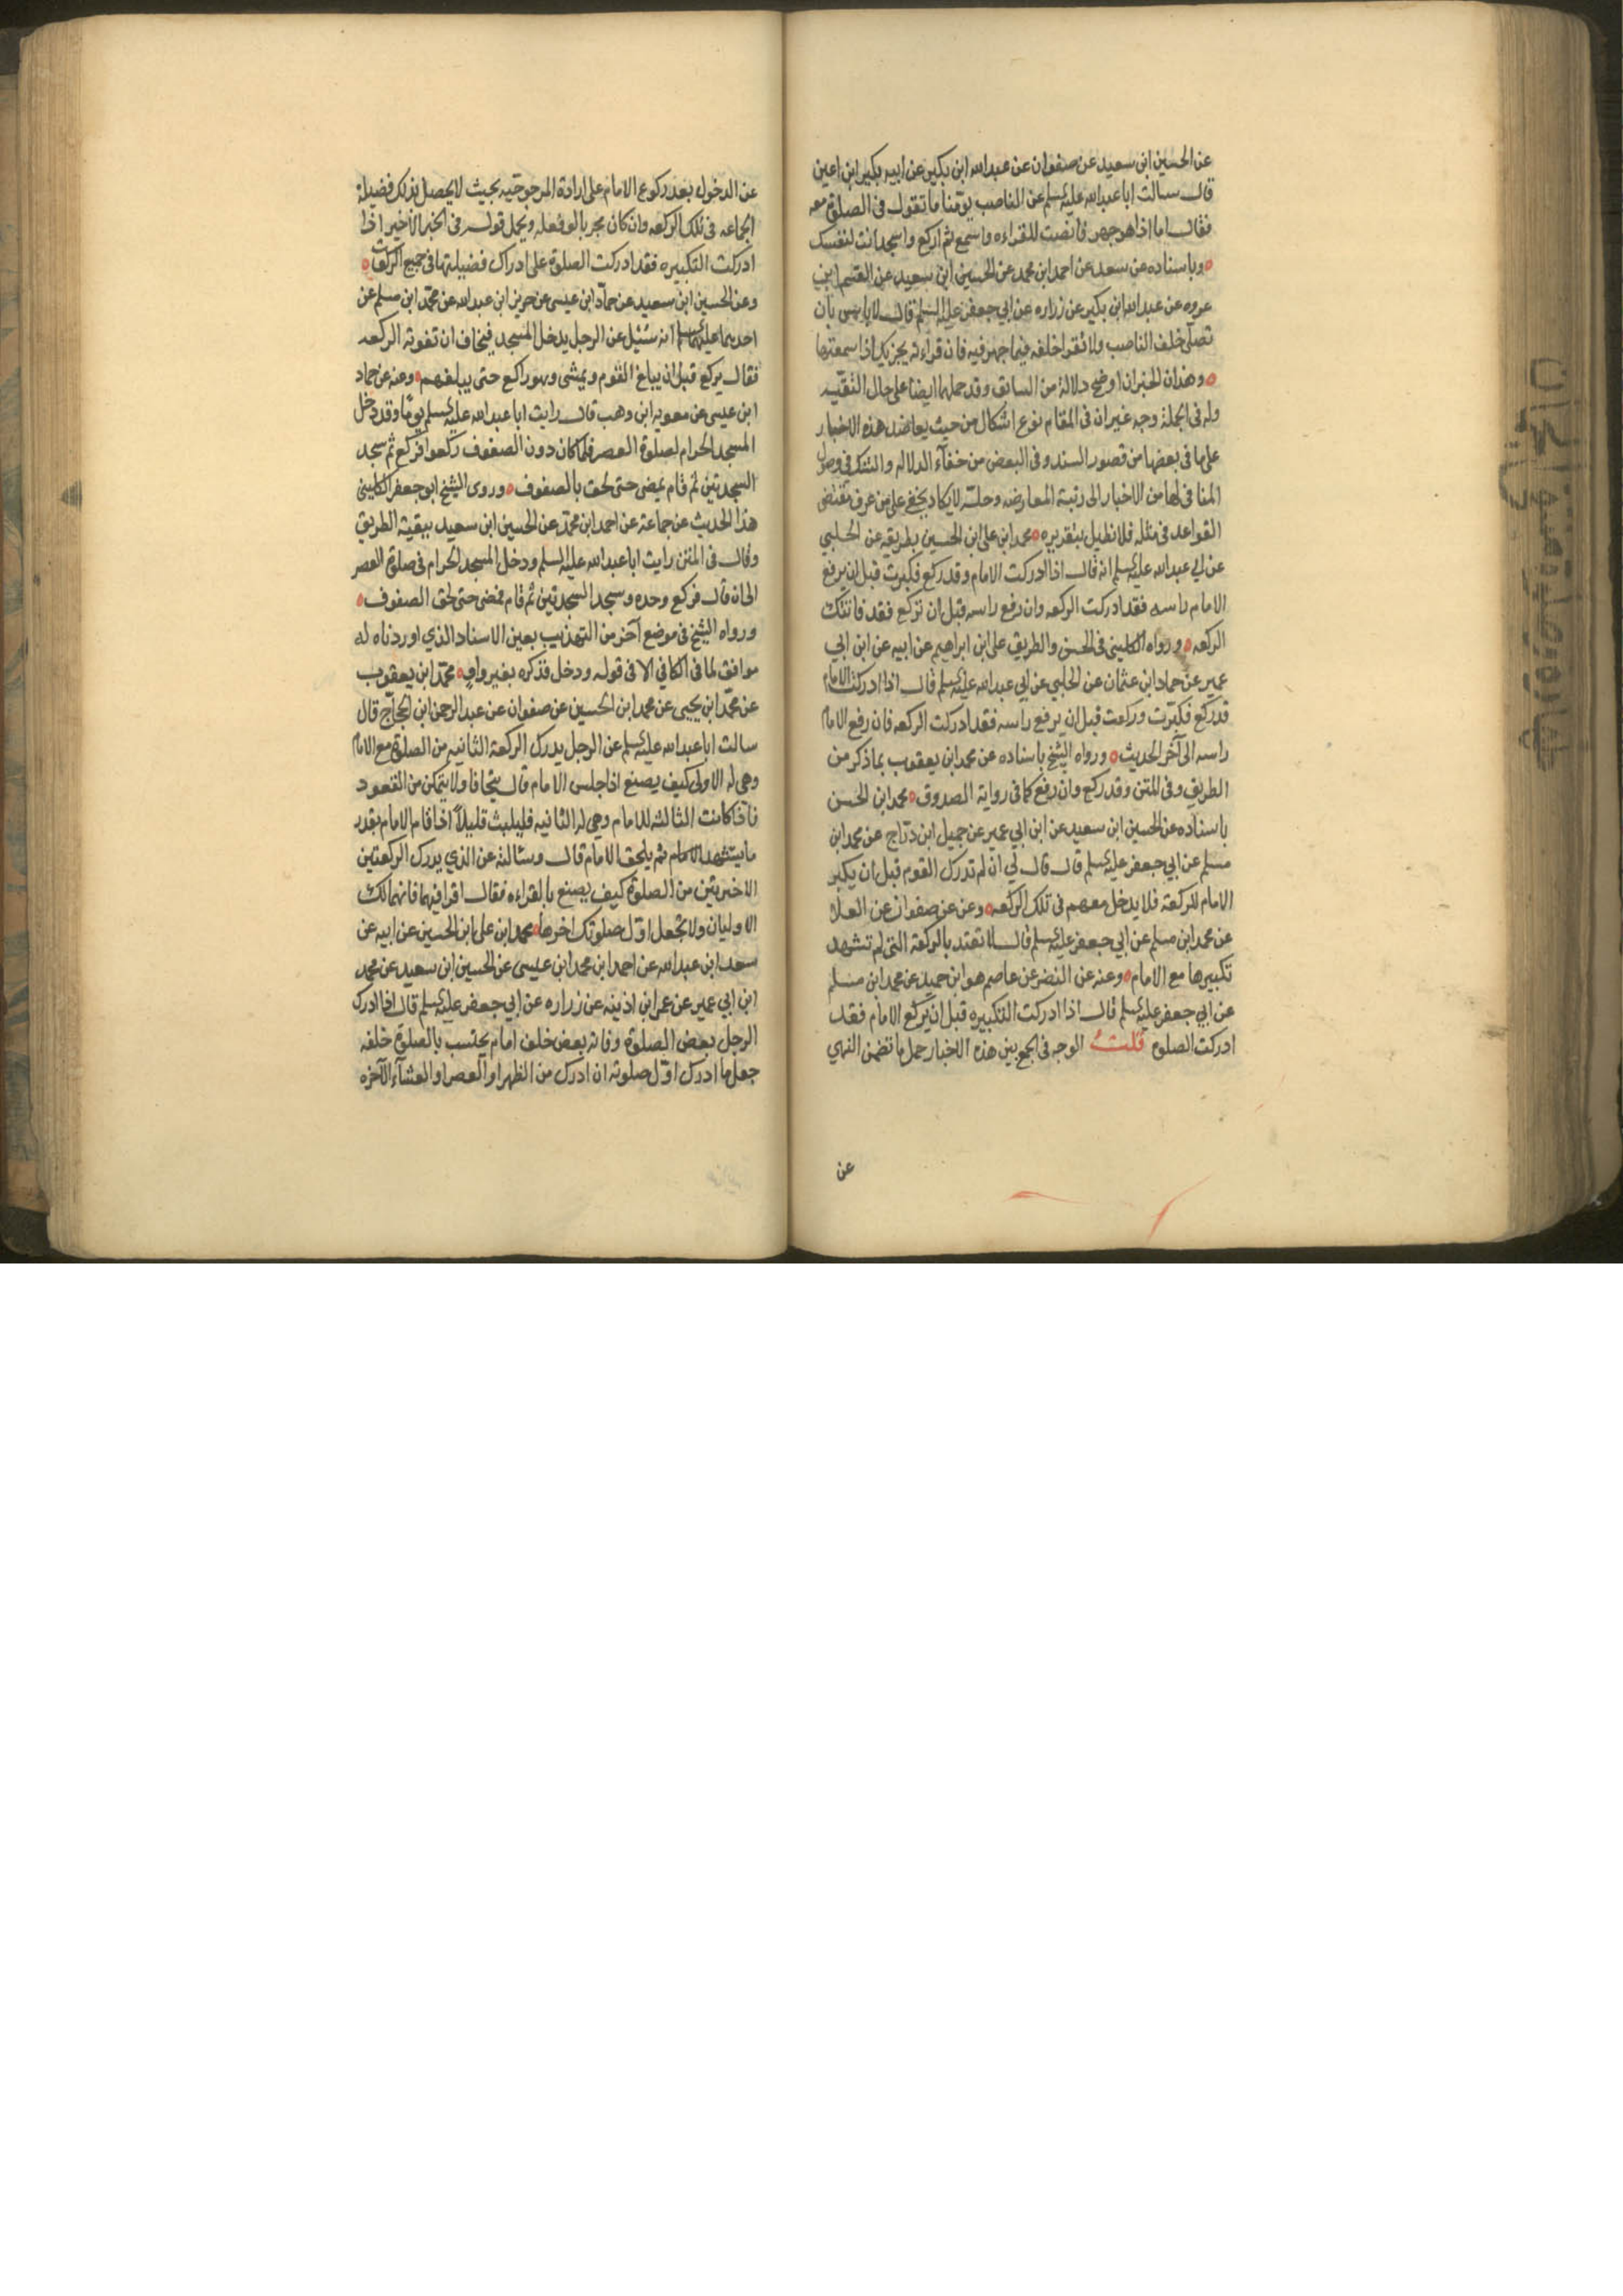 عن الحسين ابن سعيد عن صفوان عن عبد الله ابن بكير عن ابيه بكير ابن اعين
قال سالت ابا عبد الله عليه السلم عن الناصب يؤمنا ما تقول في الصلوة معه
فقال اما اذا هو جهر فانصت للقراءه واسمع ثم اركع واسجد انت لنفسك
وباسناده عن سعد عن احمد ابن محمد عن الحسين ابن سعيد عن القسم ابن
عروه عن عبد الله ابن بكير عن زراره عن ابي جعفر عليه السلم قال لا باس بان
تصلي خلف الناصب ولا تقرا خلفه فيما جهر فيه فان قراءته يجزيك اذا سمعتها
وهذان الخبران اوضح دلالة من السابق وقد حملهما ايضا على حال التقيه
وله في الجملة وجه غير ان في المقام نوع اشكال من حيث يعاضد هذه الاخبار
على ما في بعضها من قصور السند وفي البعض من خفاء الدلاله والشك في وصول
المنافي لها من الاخبار الى رتبة المعارضه وحله لا يكاد يخفى على من عرف مقتضى
القواعد في مثله فلا نطيل بتقريره محمد ابن علي ابن الحسين بطريقه عن الحلبي
عن ابي عبد الله عليه السلم انه قال اذا ادركت الامام وقد ركع فكبرت قبل ان يرفع
الامام راسه فقد ادركت الركعه وان رفع راسه قبل ان تركع فقد فاتتك
الركعه ورواه الكليني في الحسن والطريق علي ابن ابراهيم عن ابيه عن ابن ابي
عمير عن حماد ابن عثمان عن الحلبي عن ابي عبد الله عليه السلم قال اذا ادركت الامام
قد ركع فكبّرت وركعت قبل ان يرفع راسه فقد ادركت الركعه فان رفع الامام
راسه الى آخر الحديث ورواه الشيخ باسناده عن محمد ابن يعقوب بما ذكر من
الطريق وفي المتن وقد ركع وان رفع كما في رواية الصدوق محمد ابن الحسن
باسناده عن الحسين ابن سعيد عن ابن ابي عمير عن جميل ابن درّاج عن محمد ابن
مسلم عن ابي جعفر عليه السلم قال قال لي ان لم تدرك القوم قبل ان يكبر
الامام للركعة فلا يدخل معهم في تلك الركعه وعن عن صفوان عن العلا
عن محمد ابن مسلم عن ابي جعفر عليه السلم قال لا تعتد بالركعة التي لم تشهد
تكبيرها مع الامام وعنه عن النضر عن عاصم هو ابن حميد عن محمد ابن مسلم
عن ابي جعفر عليه السلم قال اذا ادركت التكبيره قبل ان يركع الامام فقد
ادركت الصلوة قلت الوجه في الجمع بين هذه الاخبار حمل ما تضمن النهي
عن
عن الدخول بعد ركوع الامام على ارادة المرجوحيه بحيث لا يحصل بذلك فضيلة
الجماعه في تلك الركعه وان كان مجزيا لو فعله ويحمل قوله في الخبر الاخير اذا
ادركت التكبيره فقد ادركت الصلوة على ادراك فضيلتها في جميع الركعات
وعن الحسين ابن سعيد عن حمّاد ابن عيسى عن حريز ابن عبد الله عن محمّد ابن مسلم عن
احدهما عليهما السلم انه سُئل عن الرجل يدخل المسجد فيخاف ان تفوته الركعه
فقال يركع قبل ان يبلغ القوم ويمشي وهو راكع حتى يبلغهم وعنه عن حماد
ابن عيسى عن معويه ابن وهب قال رايت ابا عبد الله عليه السلم يومًا وقد دخل
المسجد الحرام لصلوة العصر فلما كان دون الصفوف ركعوا فركع ثم سجد
السجدتين ثم قام فمضى حتى لحق بالصفوف وروى الشيخ ابو جعفر الكليني
هذا الحديث عن جماعة عن احمد ابن محمّد عن الحسين ابن سعيد ببقية الطريق
وقال في المتن رايت ابا عبد الله عليه السلم ودخل المسجد الحرام في صلوة العصر
الى ان قال فركع وحده وسجد السجدتين ثم قام فمضى حتى لحق الصفوف
ورواه الشيخ في موضع آخر من التهذيب بعين الاسناد الذي اوردناه له
موافق لما في الكافي الا في قوله ودخل فذكره بغير واوٍ محمّد ابن يعقوب
عن محمّد ابن يحيى عن محمد ابن الحسين عن صفوان عن عبد الرحمن ابن الحجّاج قال
سالت ابا عبد الله عليه السلم عن الرجل يدرك الركعة الثانيه من الصلوة مع الامام
وهي له الاولى كيف يصنع اذا جلس الامام قال يتجافا ولا يتمكن من القعود
فاذا كانت الثالثه للامام وهي له الثانيه فليلبث قليلًا اذا قام الامام بقدر
ما يتشهد ثم يلحق الامام قال وسئالته عن الذي يدرك الركعتين
الاخيرتين من الصلوة كيف يصنع بالقراءه فقال اقرا فيهما فانهما لك
الاوليان ولا تجعل اوّل صلوتك اخرها محمد ابن علي ابن الحسين عن ابيه عن
سعد ابن عبد الله عن احمد ابن محمد ابن عيسى عن الحسين ابن سعيد عن محمد
ابن ابي عمير عن عمر ابن اذينه عن زراره عن ابي جعفر عليه السلم قال اذا ادرك
الرجل بعض الصلوة وفاته بعض خلف امام يحتسب بالصلوة خلفه
جعل ما ادرك اوّل صلوته ان ادرك من الظهر او العصر او العشآء الآخره